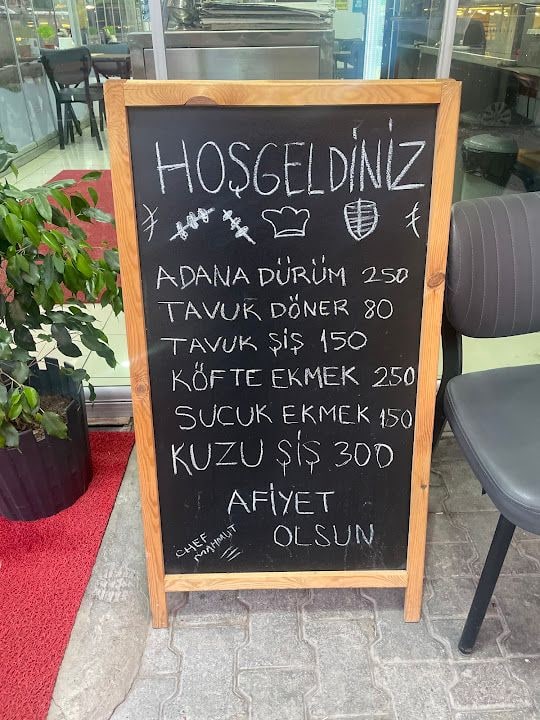 HOŞGELDİNİZ
ADANA DÜRÜM 250
TAVUK DÖNER 80
TAVUK ŞİŞ 150
KÖFTE EKMEK 250
SUCUK EKMEK 150
KUZU ŞİŞ 300
AFİYET
OLSUN
CHEF
MAHMUT